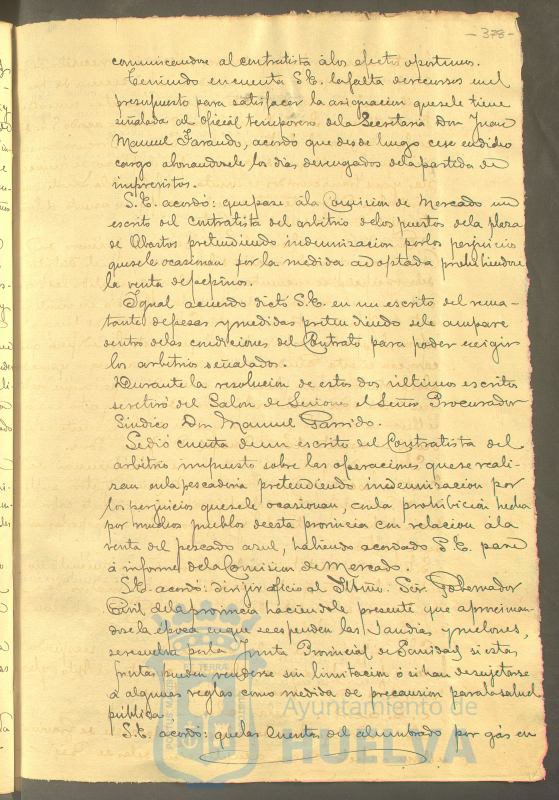 - 378 -
comunicandose al contratista á los efectos oportunos.
Teniendo en cuenta S.E. la falta de recursos en el
presupuesto para satisfacer la asignacion que se le tiene
señalada al oficial temporero de la Secretaria Don Juan
Manuel acordó que desde luego cese en dicho
cargo abonandosele los dias devengados de la partida de
imprevistos.
S.E. acordó: que pase á la Comision de Mercado un
escrito del contratista del arbitrio de los puestos de la plaza
de Abastos pretendiendo indemnizacion por los perjuicios
que se le ocasionan por la medida adoptada prohibiendose
la venta de pepinos.
Igual acuerdo dictó S.E. en un escrito del rema-
tante de pesas y medidas pretendiendo se le ampare
dentro de las condiciones del Contrato para poder exigir
los arbitrios señalados.
Durante la resolucion de estos dos últimos escritos
se retiró del Salon de Sesiones el Señor Procurador
Sindico Don Manuel Garrido.
Se dió cuenta de un escrito del Contratista del
arbitrio impuesto sobre las operaciones que se reali-
zan en la pescaderia pretendiendo indemnizacion por
los perjuicios que se le ocasionan, con la prohibicion hecha
por muchos pueblos de esta provincia con relacion á la
venta del pescado azul, habiendo acordado S.E. pase
á informe de la Comision de Mercado.
S.E. acordó: dirijir oficio al Iltmo. Sor. Gobernador
Civil de la provincia haciendole presente que aproximan-
dose la época en que se espenden las Sandias y melones,
se resuelva por la Junta Provincial de Sanidad si estas
frutas pueden venderse sin limitacion ó si han de sujetarse
á algunas reglas como medida de precaucion para la salud
pública.
S.E. acordó: que las cuentas del alumbrado por gás en
Ayuntamiento de
HUELVA